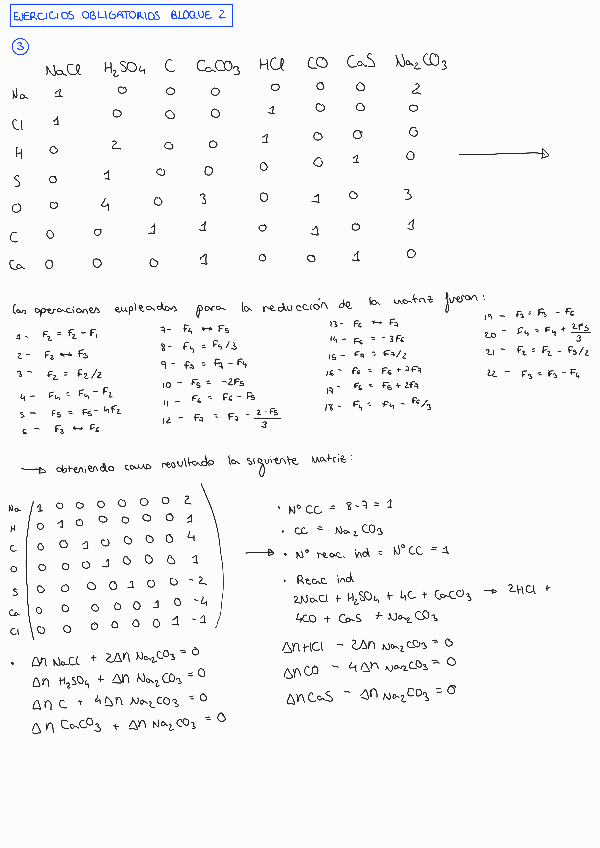 EJERCICIOS OBLIGATORIOS BLOQUE 2
3
NaCl H2SO4 C CaCO3 HCl CO CaS Na2CO3
Na 1 0 0 0 0 0 0 2
Cl 1 0 0 0 1 0 0 0
H 0 2 0 0 1 0 0 0
S 0 1 0 0 0 0 1 0
O 0 4 0 3 0 1 0 3
C 0 0 1 1 0 1 0 1
Ca 0 0 0 1 0 0 1 0
Las operaciones empleadas para la reducción de la matriz fueron:
1- F2 = F2 - F1
2- F2 ↔ F3
3- F2 = F2/2
4- F4 = F4 - F2
5- F5 = F5 - 4F2
6- F3 ↔ F6
7- F4 ↔ F5
8- F4 = F4/3
9- F7 = F7 - F4
10- F5 = -2F5
11- F6 = F6 - F5
12- F7 = F7 - 2·F5/3
13- F6 ↔ F7
14- F6 = -3F6
15- F7 = F7/2
16- F6 = F6 + 2F7
17- F5 = F5 + 2F7
18- F4 = F4 - F6/3
19- F3 = F3 - F6
20- F4 = F4 + 2F5/3
21- F2 = F2 - F5/2
22- F3 = F3 - F4
→ obteniendo como resultado la siguiente matriz:
Na 1 0 0 0 0 0 0 2
H 0 1 0 0 0 0 0 1
C 0 0 1 0 0 0 0 4
O 0 0 0 1 0 0 0 1
S 0 0 0 0 1 0 0 -2
Ca 0 0 0 0 0 1 0 -4
Cl 0 0 0 0 0 0 1 -1
· Nº CC = 8-7 = 1
· CC = Na2CO3
· Nº reac. ind = Nº CC = 1
· Reac ind
2NaCl + H2SO4 + 4C + CaCO3 → 2HCl +
4CO + CaS + Na2CO3
· Δn NaCl + 2Δn Na2CO3 = 0
Δn H2SO4 + Δn Na2CO3 = 0
Δn C + 4Δn Na2CO3 = 0
Δn CaCO3 + Δn Na2CO3 = 0
Δn HCl - 2Δn Na2CO3 = 0
Δn CO - 4Δn Na2CO3 = 0
Δn CaS - Δn Na2CO3 = 0